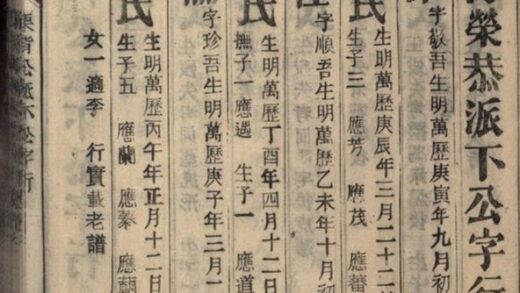 榮恭派下公字行
字敬吾生明萬歷庚寅年九月初
氏
生明萬歷庚辰年三月二十二日
生子三 應芳 應茂 應蕃
字順吾生明萬歷乙未年十月初
氏
生明萬歷丁酉年四月十二日
撫子一應遇 生子一 應道
字珍吾生明萬歷庚子年三月
氏
生明萬歷丙午年正月十二日
生子五 應蘭 應蓁 應
女一適李 行實載老譜